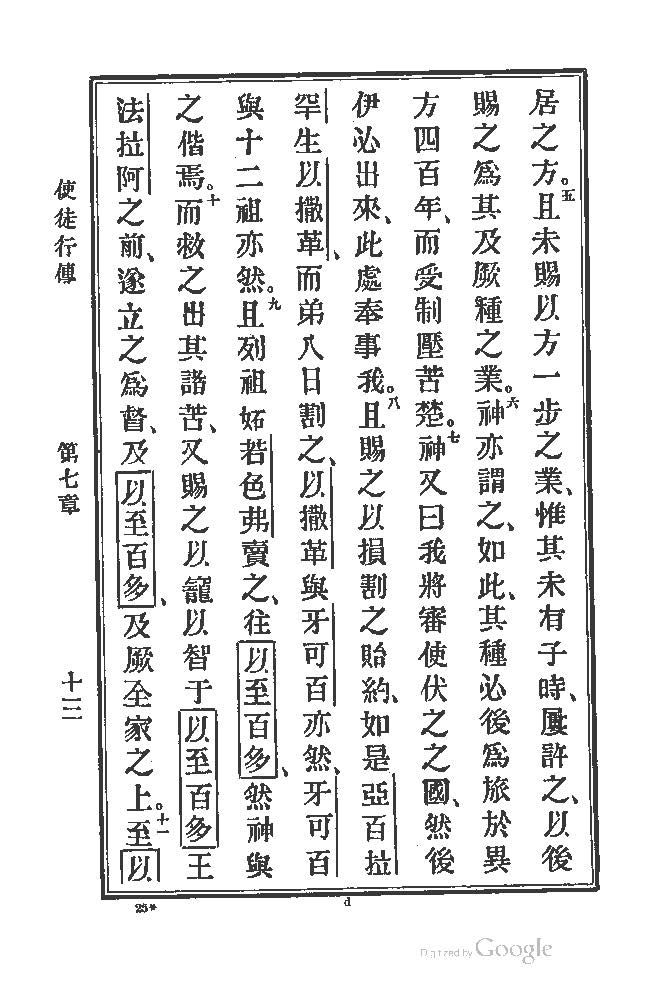 居之方。五且未賜以方一步之業、惟其未有子時、屢許之、以後
賜之爲其及厥種之業。六神亦謂之、如此、其種必後爲旅於異
方四百年、而受制壓苦楚。七神又曰我將審使伏之之國、然後
伊必出來、此處奉事我。八且賜之以損割之貽約、如是亞百拉
罕生以撒革、而弟八日割之、以撒革與牙可百亦然、牙可百
與十二祖亦然。九且列祖妬若色弗賣之、往以至百多、然神與
之偕焉。十而救之出其諸苦、又賜之以寵以智于以至百多王
法拉阿之前、遂立之爲督、及以至百多、及厥全家之上。十一至以
使徒行傳
第七章
十三
23*
d
Digitized by Google